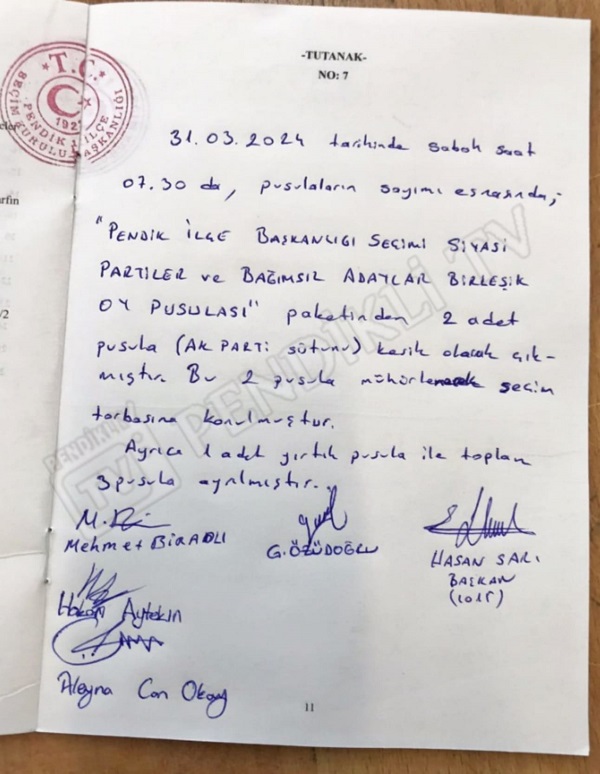 -TUTANAK-
NO: 7
T.C.
PENDİK 1 İLÇE
SEÇİM KURULU BAŞKANLIĞI
192
rfin
/2
31.03.2024 tarihinde sabah saat
07.30 da, pusulaların sayımı esnasında,-
"PENDİK İLÇE BAŞKANLIĞI SEÇİMİ SİYASİ
PARTİLER ve BAĞIMSIZ ADAYLAR BİRLEŞİK
OY PUSULASI" paketinden 2 adet
pusula (AK PARTİ sütunu) kesik olarak çık-
mıştır. Bu 2 pusula mühürlenerek seçim
torbasına konulmuştur.
Ayrıca 1 adet yırtık pusula ile toplam
3 pusula ayrılmıştır.
Mehmet BİRADLI
G. ÖZÜDOĞLU
HASAN SARI
BAŞKAN
(1015)
Hakan Aytekin
Aleyna Can Okay
11
PENDİKLİ TV